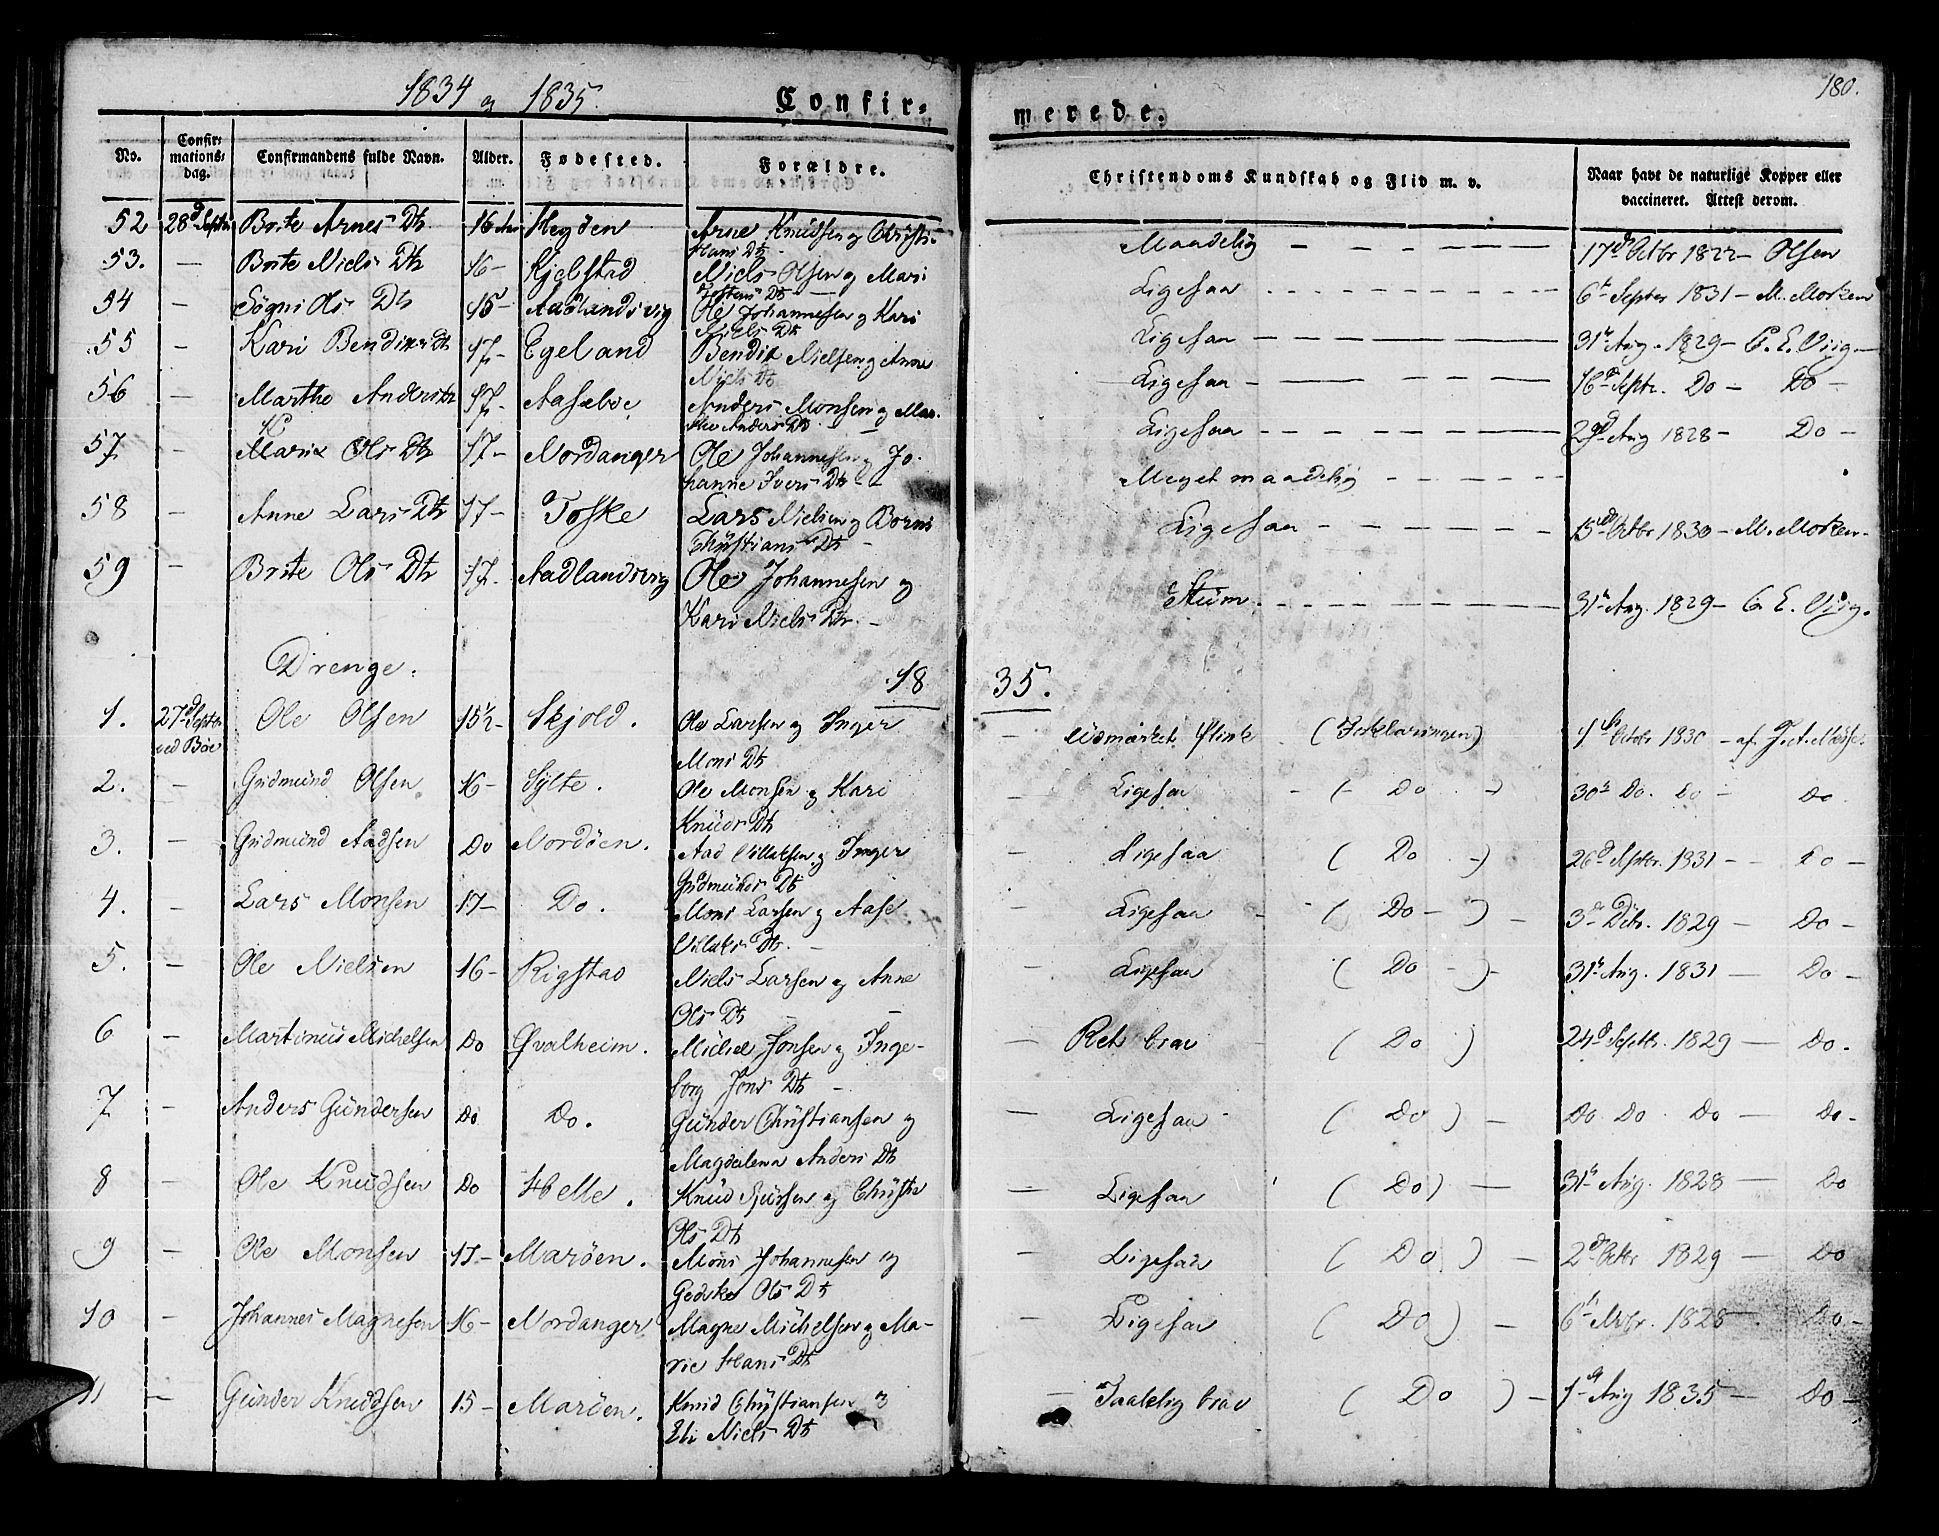 1834 og 1835.
Confir-
merede.
180.
No.
Confir-
mations-
dag.
Confirmandens fulde Navn.
Alder.
Fødested.
Forældre.
Christendoms Kundskab og Flid m. v.
Naar havt de naturlige Kopper eller
vaccineret. Attest derom.
52 28d Septbr Brite Arnes Dtr 16 Aar Høyden Arne Knudsen og Christi-
Hans Dtr Maadelig — — — 17d Octbr 1822 — Olsen
53. — Brite Niels Dtr 16 — Kjelstad Niels Olsen og Mari
Dtr — Ligesaa - - - 6te Septbr 1831 — M. Morken
54 — Sögni Ols Dtr 15 - Aadlandsvig Ole Johannesen og Kari
Niels Dtr Ligesaa — — — 31te Aug. 1829 — C. E. Viig —
55 — Kari Bendixs Dtr 17 - Egeland Bendix Nielsen og Anne
Niels Do Ligesaa — — — 16d Septr. Do — Do —
56 — Marthe Anders Dtr 17 - Aasebøe Anders Monsen og Mar-
the Anders Dtr — Ligesaa — — — 29d Aug 1828 — Do —
57. — Marie Ols Dtr 17 — Nordanger Ole Johannesen og Jo-
hanne Ivers Dtr Meget maadelig - - -
58 — Anne Lars Dtr 17 — Toske Lars Nielsen og Borni
Christians Dtr — Ligesaa — — — 15de Octbr 1830 — M. Morken —
59 — Brite Ols Dtr 17. Aadlandsvig Ole Johannesen og
Kari Niels Dtr. — Stum. — — — 31te Aug. 1829 — C. E. Viig.
Drenge.
18 35.
1. 27d Septbr Ole Olsen 15½ - Skjold. Ole Larsen og Inger
ved Bøe Mons Dtr — Udmærket flink ( ) 1ste Octbr 1830 — af
2. — Gudmund Olsen 16 — Sylte. Ole Monsen og Kari
Knuds Dtr — Ligesaa - (- Do -) 30te Do. Do — Do.
3. — Gudmund Aadsen Do Nordöen. Aad Villaksen og Inger
Gudmunds Dtr — Ligesaa ( Do -) 26d Septbr. 1831 — — Do —
4. — Lars Monsen 17 — Do. Mons Larsen og Aase
Villaks Dtr. — — Ligesaa - ( Do - ) — 3d Octbr. 1829 — Do —
5. — Ole Nielsen 16 — Rigstad Niels Larsen og Anne
Ols Dtr — — Ligesaa ( Do - ) - 31te Aug. 1831 — Do —
6 — Martinus Michelsen Do Qvalheim. Michel Jonsen og Inge-
borg Jons Dtr — — Rets brav ( Do ) 24d Septbr. 1829 — Do.
7 — Anders Gundersen Do Do. Gunder Christiansen og
Magdalena Anders Dtr — Ligesaa ( Do ) — Do Do Do — Do -
8 — Ole Knudsen Do Helle. Knud Sjursen og Christi
Ols Dtr — Ligesaa ( Do ) — 31te Aug. 1828 — Do
9 — Ole Monsen 17 — Maröen. Mons Johannesen og
Gedske Ols Dtr — Ligesaa ( Do ) — 2d Octbr 1829 — Do
10 — Johannes Magnesen 16 — Nordanger. Magne Michelsen og Ma-
rie Hans Dtr — Ligesaa ( Do ) — 6te Novbr. 1828 — Do —
11 — Gunder Knudsen 15 — Maröen. Knud Christiansen og
Eli Niels Dtr — Taalelig brav ( Do ) — 1d Aug 1835 — Do —